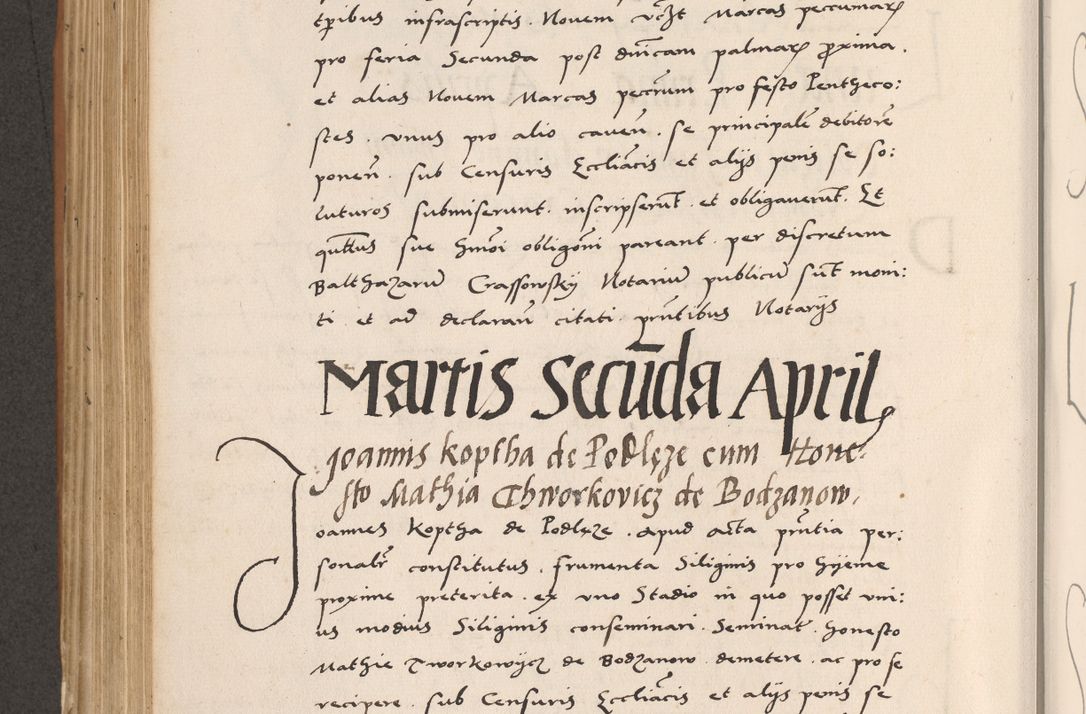 tp̃ibus infrascriptis . Novem vc̃Ʒt Marcas peccumarꝝ
pro feria Secunda post dm̃cam palmarꝝ proxima .
et alias Novem Marcas pecc̃rum pro festo Pentheco:
stes . vnus pro alio caven̄ . se principalē debitorē
ponen̄ . sub Censuris Eccliãcis et alijs penis se so:
luturos submiserunt . inscripserūt . et obligaverūt . Et
quĩbus sue hmõi obligõni pareant . per discretum
Balthazarū Crassowsky Notariū publicū sūt moni:
ti . et ad declaran̄ citati . pñtibus Notarijs
Martis Secūda Aprilꝭ
Joannis Koptha de Podlęze cum Hone:
sto Mathia Thworkovicz de Bodzanow .
Joannes Koptha de Podlęze . apud acta pñtia per:
sonalr̃ constitutus . frumenta Siliginis pro hyeme
proxime preterita . ex vno Stadio in quo posset vni:
us modius Siliginis conseminari . Seminat̄ . honesto
Mathie Tworkowijcz de Bodzanow . demetere . ac pro se
recipere . sub Censuris Eccliãcis et alijs penis se